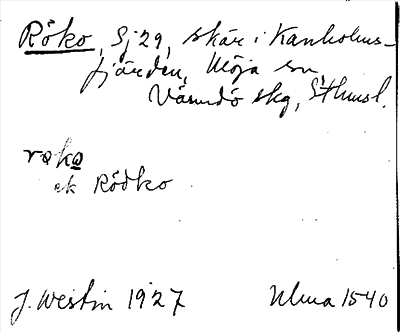 Röko, Sj 29, skär i Kanholms-
fjärden, Möja sn
Värmdö skg, Sthmsl.
røko
ek Rödko
J. Westin 1927 Ulma 1540